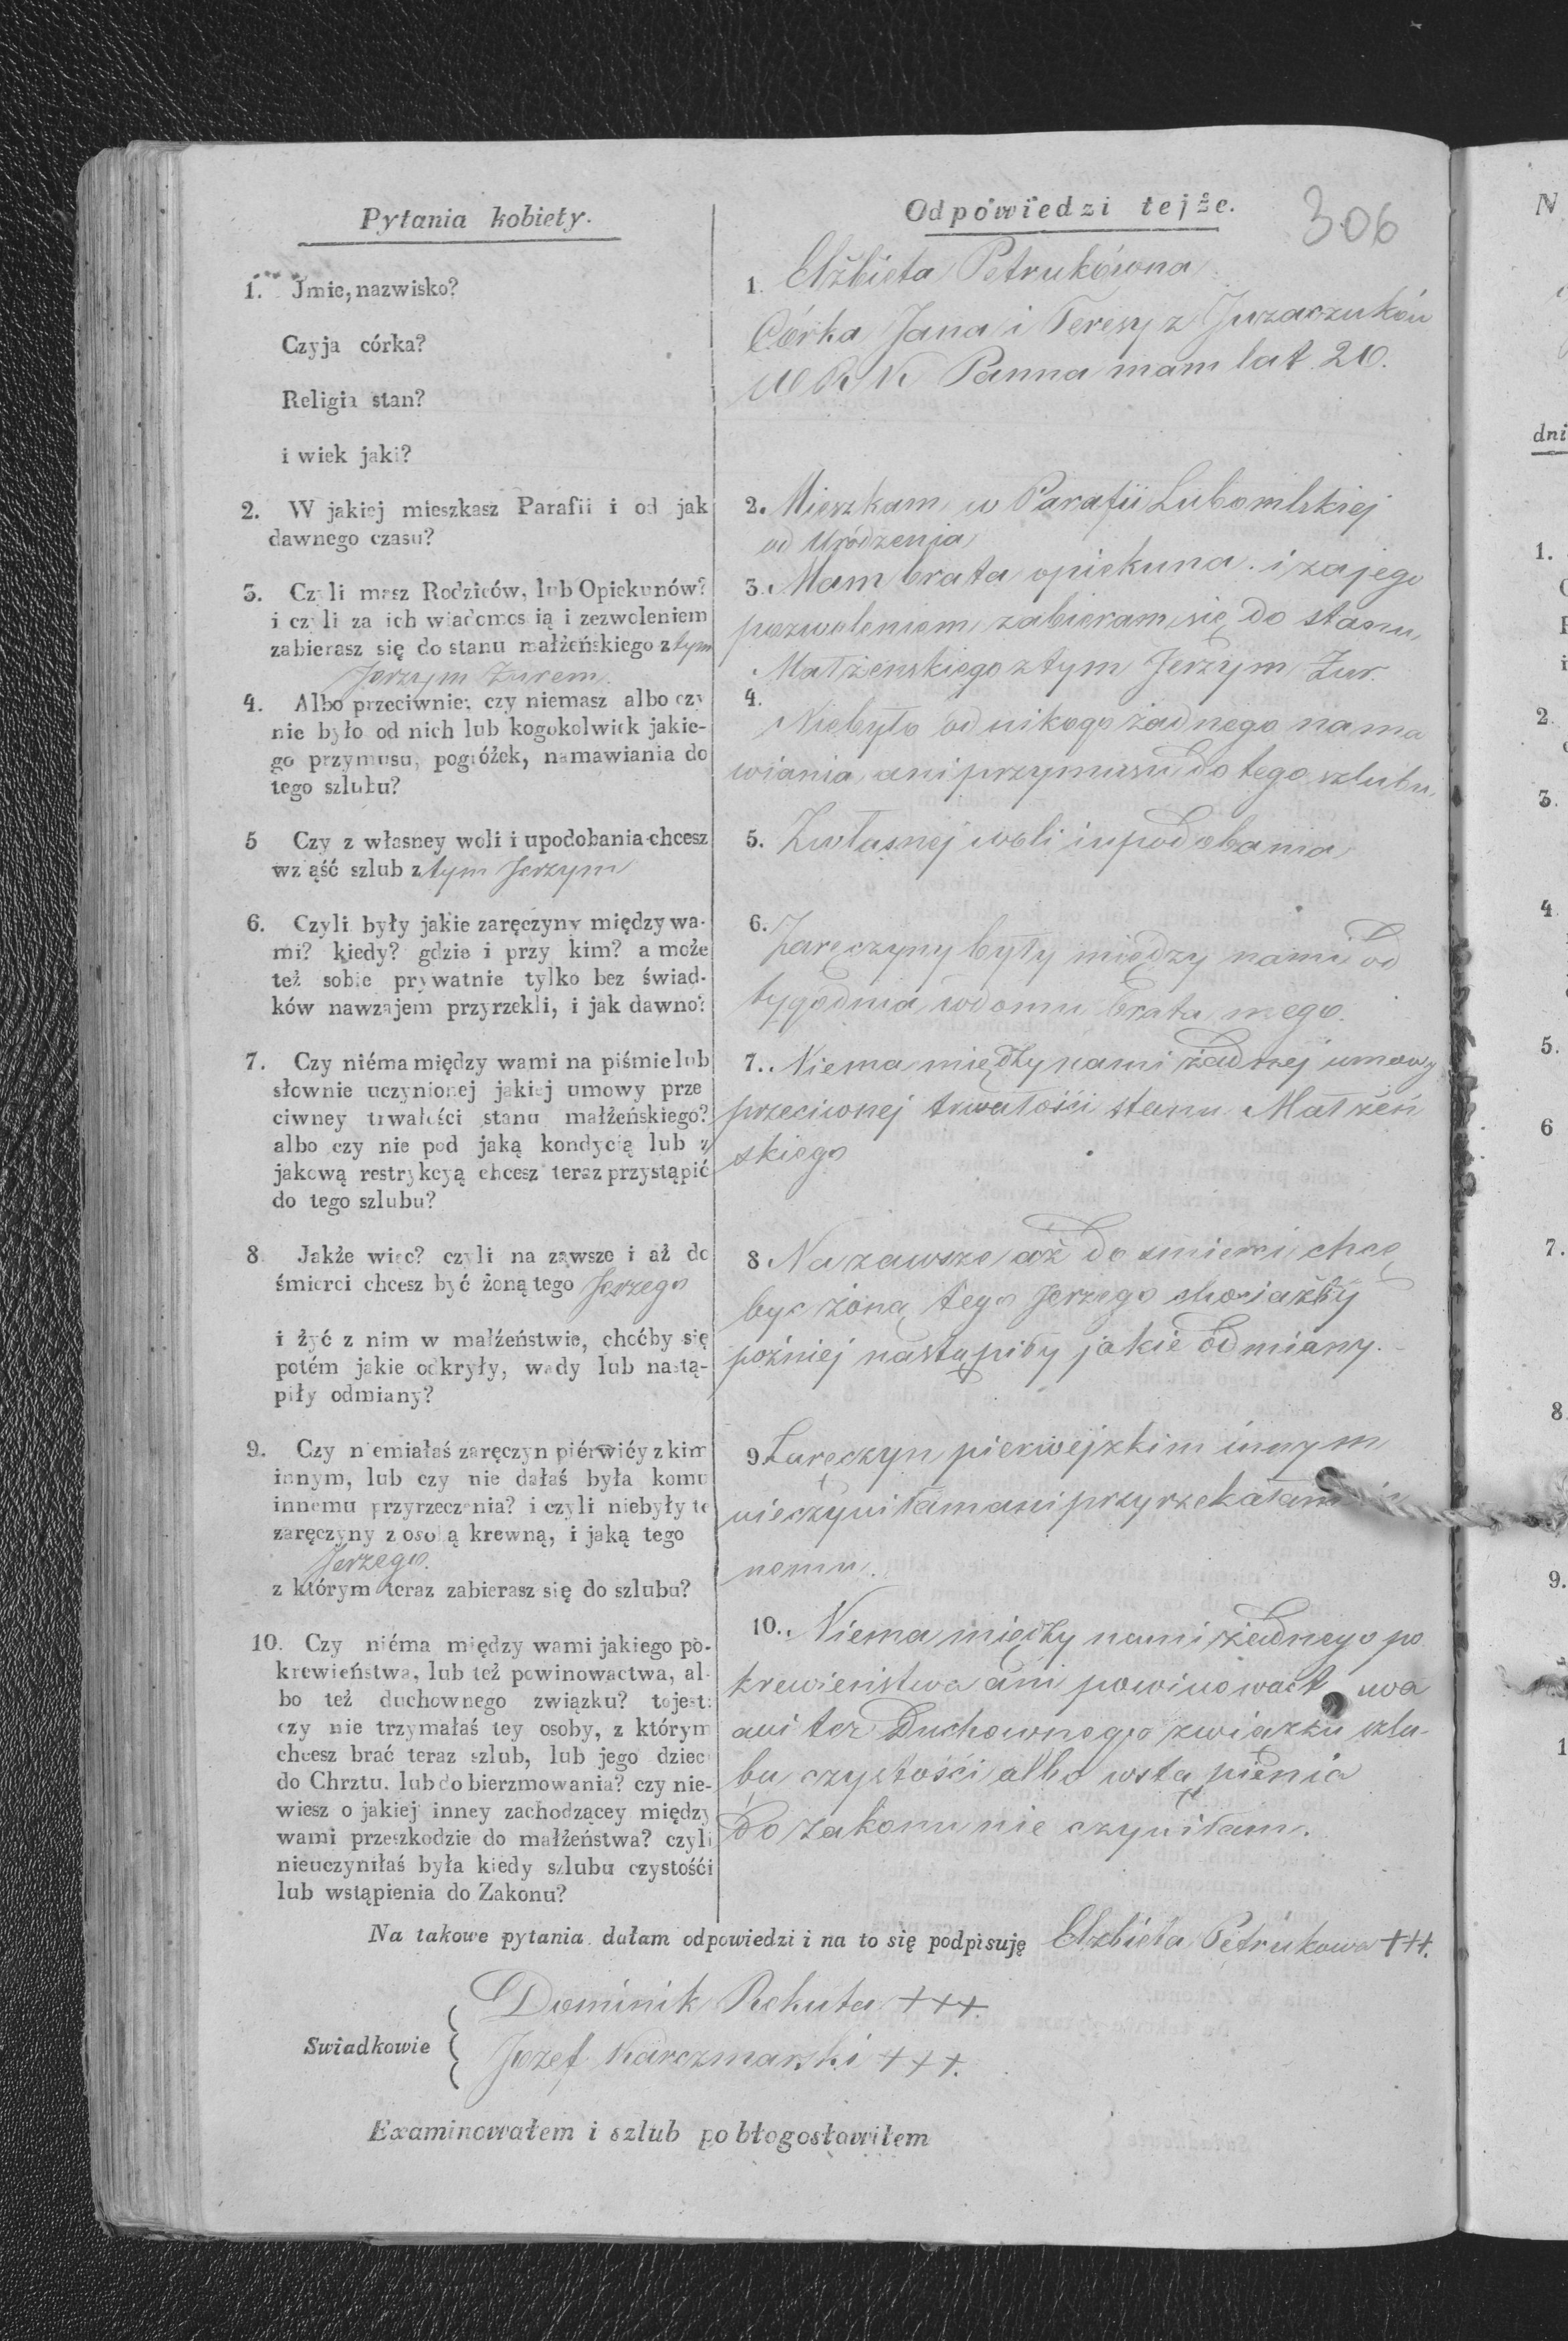 Pytania kobiety.
1. Jmie, nazwisko?
Czyja córka?
Religia stan?
i wiek jaki?
2. W jakiej mieszkasz Parafii i od jak
dawnego czasu?
3. Czyli masz Rodziców, lub Opiekunów?
i czyli za ich wiadomością i zezwoleniem
zabierasz się do stanu małżeńskiego z tym
Jerzym Żurem.
4. Albo przeciwnie, czy niemasz albo czy
nie było od nich lub kogokolwiek jakie-
go przymusu, pogróżek, namawiania do
tego szlubu?
5 Czy z własney woli i upodobania chcesz
wziąść szlub z tym Jerzym
6. Czyli były jakie zaręczyny między wa-
mi? kiedy? gdzie i przy kim? a może
też sobie prywatnie tylko bez świad-
ków nawzajem przyrzekli, i jak dawno?
7. Czy niéma między wami na piśmie lub
słownie uczynionej jakiej umowy prze
ciwney trwałości stanu małżeńskiego?
albo czy nie pod jaką kondycią lub z
jakową restrykcyą chcesz teraz przystąpić
do tego szlubu?
8 Jakże więc? czyli na zawsze i aż do
śmierci chcesz być żoną tego Jerzego
i żyć z nim w małżeństwie, choćby się
potém jakie odkryły, wady lub nastą-
piły odmiany?
9. Czy niemiałaś zaręczyn piérwićy z kim
innym, lub czy nie dałaś była komu
innemu przyrzeczenia? i czyli niebyły te
zaręczyny z osobą krewną, i jaką tego
Jerzego.
z którym teraz zabierasz się do szlubu?
10. Czy niéma między wami jakiego po-
krewieństwa, lub też powinowactwa, al-
bo też duchownego związku? tojest:
czy nie trzymałaś tey osoby, z którym
chcesz brać teraz szlub, lub jego dzieci
do Chrztu, lub do bierzmowania? czy nie-
wiesz o jakiej inney zachodzącey między
wami przeszkodzie do małżeństwa? czyli
nieuczyniłaś była kiedy szlubu czystośći
lub wstąpienia do Zakonu?
Odpowiedzi tejże.
306
1. Elżbieta Petrukówna
Córka Jana i Teresy z Juzaczuków
W R K Panna mam lat 20.
2. Mieszkam w Parafii Lubomlskiej
od Urodzenia
3. Mam brata opiekuna i za jego
pozwoleniem zabieram się do stanu
Małżenskiego z tym Jerzym Żur.
4.
Niebyło od nikogo żadnego nama
wiania ani przymusu do tego szlubu
5. Zwłasnej woli i upodobania
6.
Zaręczyny były między nami od
tygodnia w domu brata mego.
7. Niema między nami żadnej umowy
przeciwnej trwałości stanu Małżeń
skiego
8 Na zawsze aż do smierci chcę
byc żoną tego Jerzego chociażby
poźniej nastąpiły jakie odmiany.
9 Zaręczyn pierwej z kim innym
nieczyniłam ani przyrzekałam in
nemu.
10. Niema między nami żadnego po
krewieństwa ani powinowact wa
ani też Duchownego związku szlu-
bu czystości albo wstąpienia
do zakonu nie czyniłam.
Na takowe pytania dałam odpowiedzi i na to się podpisuję Elżbieta Petrukowa +++.
Dominik Rekuta +++.
Swiadkowie
Jozef Karczmarski +++.
Examinowałem i szlub pobłogosławiłem
N
dni
1.
2.
3.
4
5.
6
7.
8
9.
1